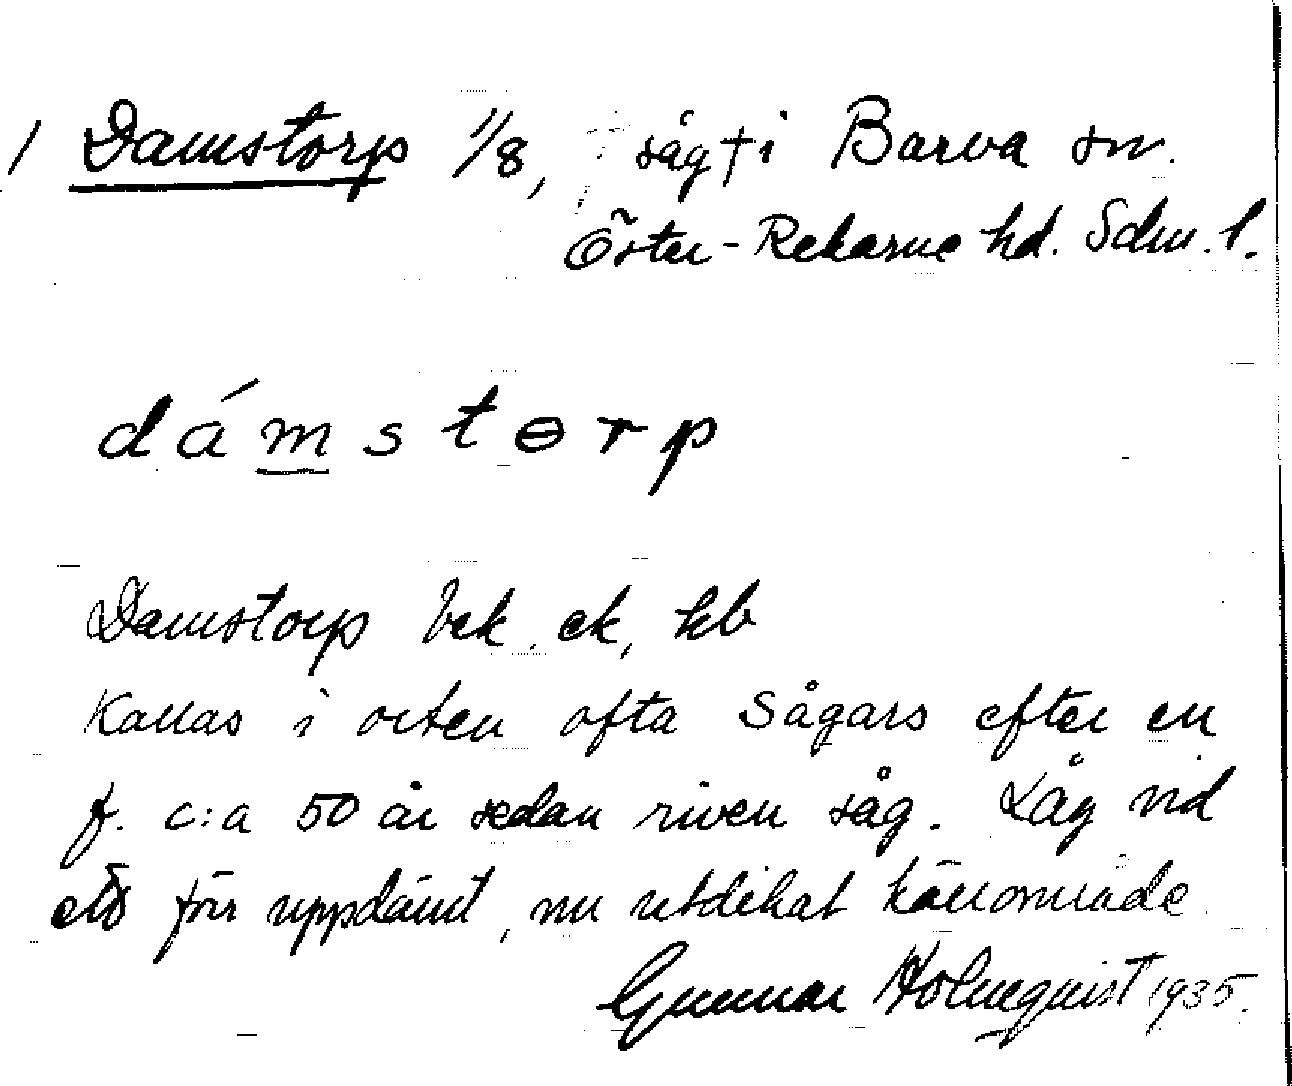 1 Damstorp 1/8, såg † i Barva sn.
Öster-Rekarne hd. Sdm. l.
dámstɵrp
Damstorp bek, ek, hb
Kallas i orten ofta Sågars efter en
f. c:a 50 år sedan riven såg. Låg vid
ett förr uppdämt, nu utdikat kärrområde
Gunnar Holmquist 1935.